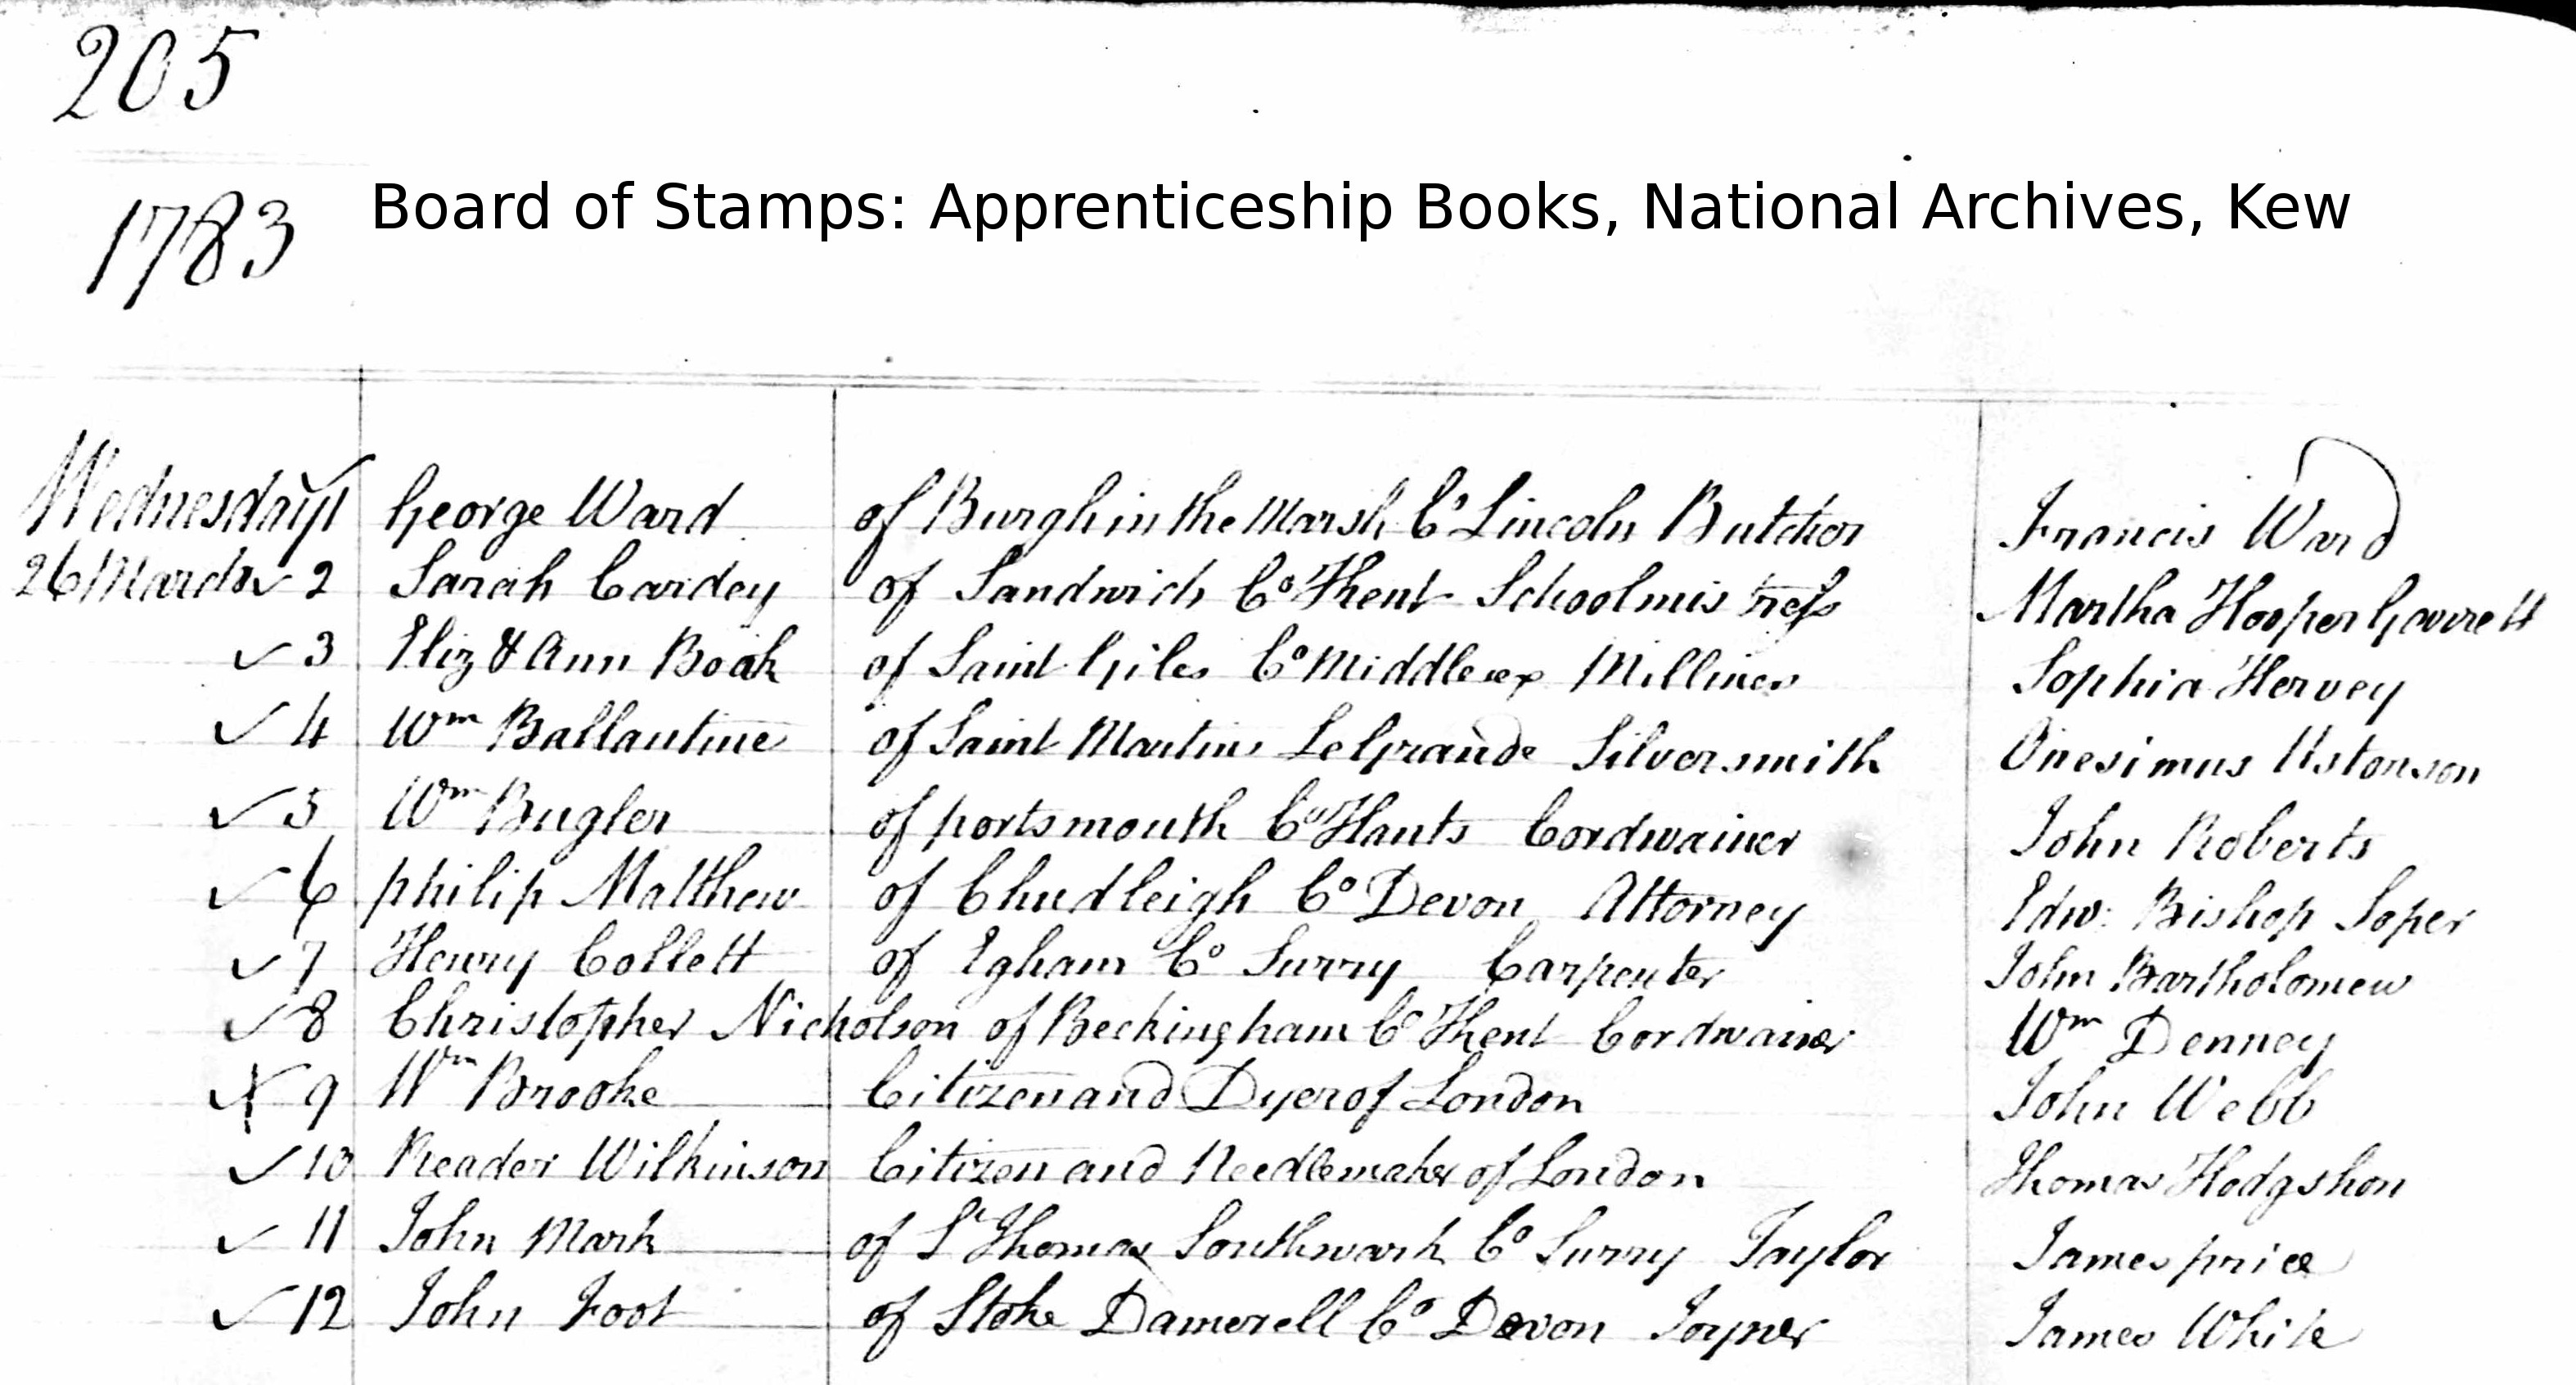 205
1783 Board of Stamps: Apprenticeship Books, National Archives, Kew
Wednesday 1 George Ward of Burgh in the Marsh Co Lincoln Butcher Francis Ward
26 March 2 Sarah Cardey of Sandwich Co Kent Schoolmistress Martha Hooper Garrett
3 Eliz & Ann Boak of Saint Giles Co Middlesex Milliners Sophia Hervey
4 Wm Ballantine of Saint Martins LeGrande Silversmith Onesimus Ustonson
5 Wm Bugler of portsmouth Co Hants Cordwainer John Roberts
6 philip Matthew of Chudleigh Co Devon Attorney Edw: Bishop Soper
7 Henry Collett of Egham Co Surry Carpenter John Bartholomew
8 Christopher Nicholson of Beckingham Co Kent Cordwainer Wm Denney
9 Wm Brooke Citizen and Dyer of London John Webb
10 Reader Wilkinson Citizen and Needlemaker of London Thomas Hodgshon
11 John Mark of St Thomas Southwark Co Surry Taylor James price
12 John Foot of Stoke Damerell Co Devon Joyner James White